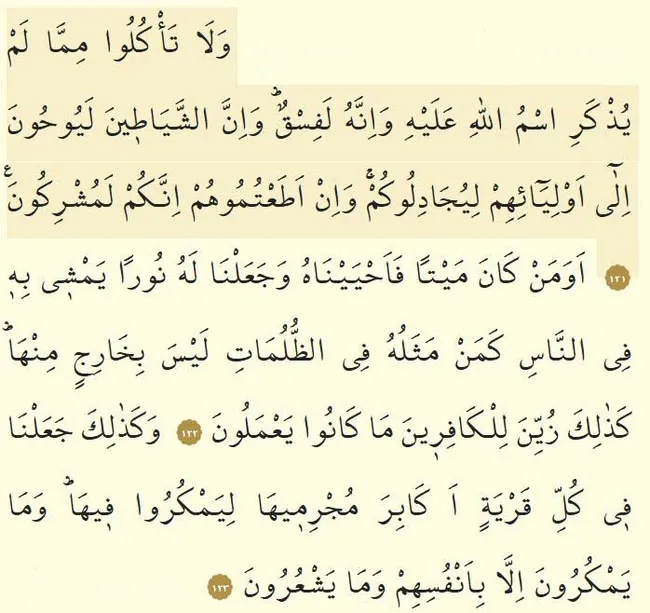 وَلَا تَأْكُلُوا مِمَّا لَمْ
يُذْكَرِ اسْمُ اللّٰهِ عَلَيْهِ وَاِنَّهُ لَفِسْقٌۜ وَاِنَّ الشَّيَاط۪ينَ لَيُوحُونَ
اِلٰٓى اَوْلِيَٓائِهِمْ لِيُجَادِلُوكُمْۚ وَاِنْ اَطَعْتُمُوهُمْ اِنَّكُمْ لَمُشْرِكُونَ۟
﴿١٢١﴾ اَوَمَنْ كَانَ مَيْتًا فَاَحْيَيْنَاهُ وَجَعَلْنَا لَهُ نُورًا يَمْش۪ى بِه۪
فِى النَّاسِ كَمَنْ مَثَلُهُ فِى الظُّلُمَاتِ لَيْسَ بِخَارِجٍ مِنْهَاۜ
كَذٰلِكَ زُيِّنَ لِلْكَافِر۪ينَ مَا كَانُوا يَعْمَلُونَ ﴿١٢٢﴾ وَكَذٰلِكَ جَعَلْنَا
ف۪ى كُلِّ قَرْيَةٍ اَ كَابِرَ مُجْرِم۪يهَا لِيَمْكُرُوا ف۪يهَاۜ وَمَا
يَمْكُرُونَ اِلَّا بِاَنْفُسِهِمْ وَمَا يَشْعُرُونَ ﴿١٢٣﴾